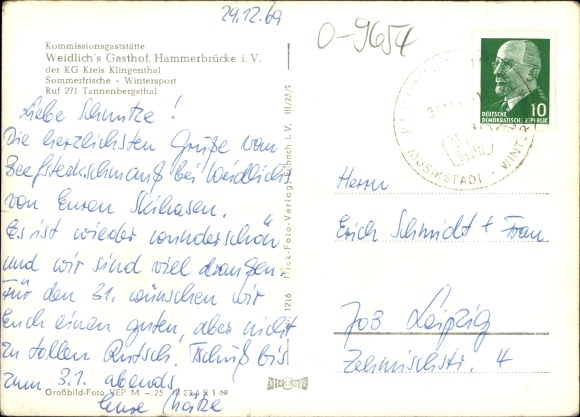 29.12.69
O-9654
Kommissionsgaststätte
Weidlich's Gasthof, Hammerbrücke i. V.
der KG Kreis Klingenthal
Sommerfrische - Wintersport
Ruf 271 Tannenbergsthal
Liebe Schmitze!
Die herzlichsten Grüße vom
Beefsteakschmauß bei Weidlichs
von Euren Skihasen.
Es ist wieder wunderschön
und wir sind viel draußen.
Für den 31. wünschen wir
Euch einen guten, aber nicht
zu tollen Rutsch. Tschüß bis
zum 3.1. abends
Eure
Großbild-Foto VEP M -.25
1216 Dick-Foto-Verlag Erlbach i. V. III/23/5
DICK-FOTO
DEUTSCHE
DEMOKRATISCHE REPUBLIK
10
MUSIKSTADT · WINT
Herrn
Erich Schmidt + Frau
703 Leipzig
Zehmischstr. 4